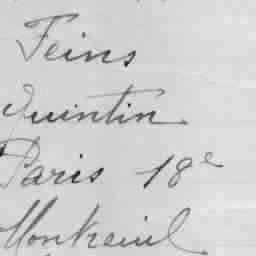 Feins
Quintin
Paris 18e
Montreuil